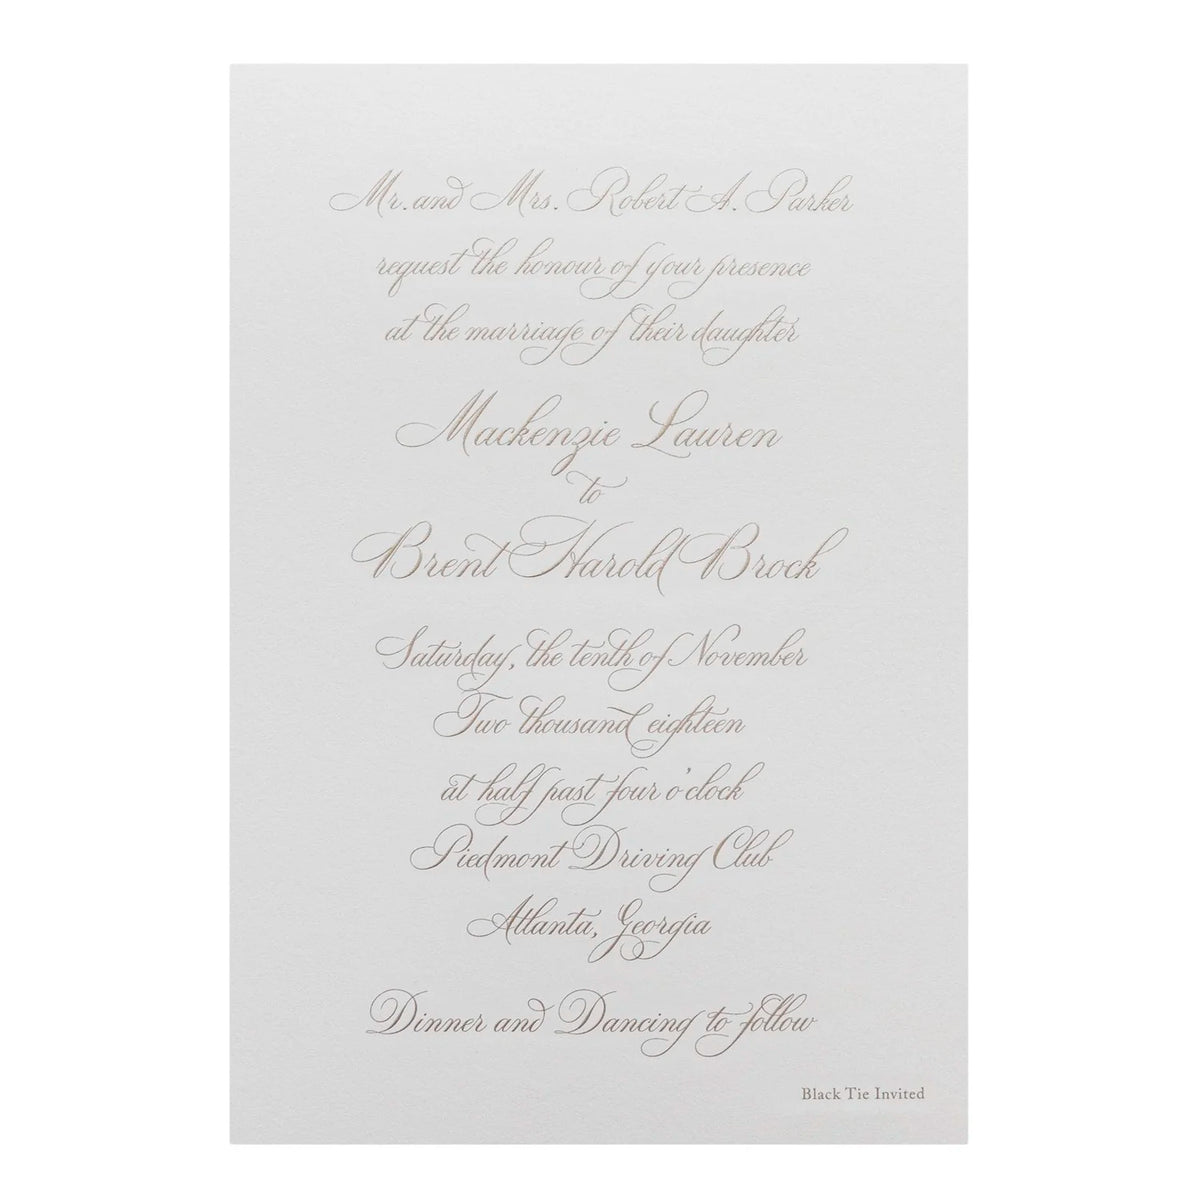 Mr. and Mrs. Robert A. Parker
request the honour of your presence
at the marriage of their daughter
Mackenzie Lauren
to
Brent Harold Brock
Saturday, the tenth of November
Two thousand eighteen
at half past four o'clock
Piedmont Driving Club
Atlanta, Georgia
Dinner and Dancing to follow
Black Tie Invited